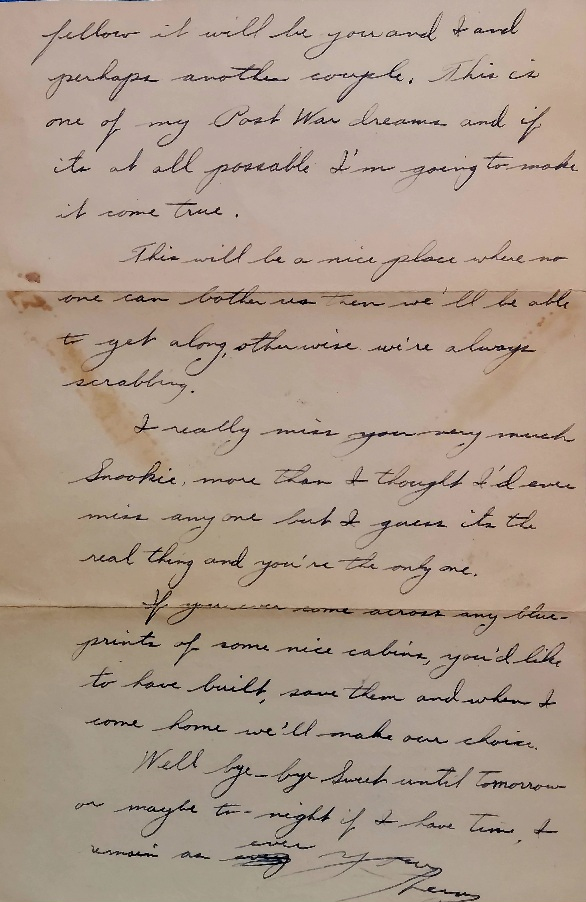 fellow it will be you and I and
perhaps another couple. This is
one of my Post War dreams and if
its at all possable I'm going to make
it come true.
This will be a nice place where no
one can bother us then we'll be able
to get along, otherwise we're always
scrabbing.
I really miss you very much
Snookie, more than I thought I'd ever
miss anyone but I guess its the
real thing and you're the only one.
If you ever come across any blue-
prints of some nice cabins, you'd like
to have built, save them and when I
come home we'll make our choice.
Well bye-bye Sweet until tomorrow
or maybe to-night if I have time, I
remain as ever